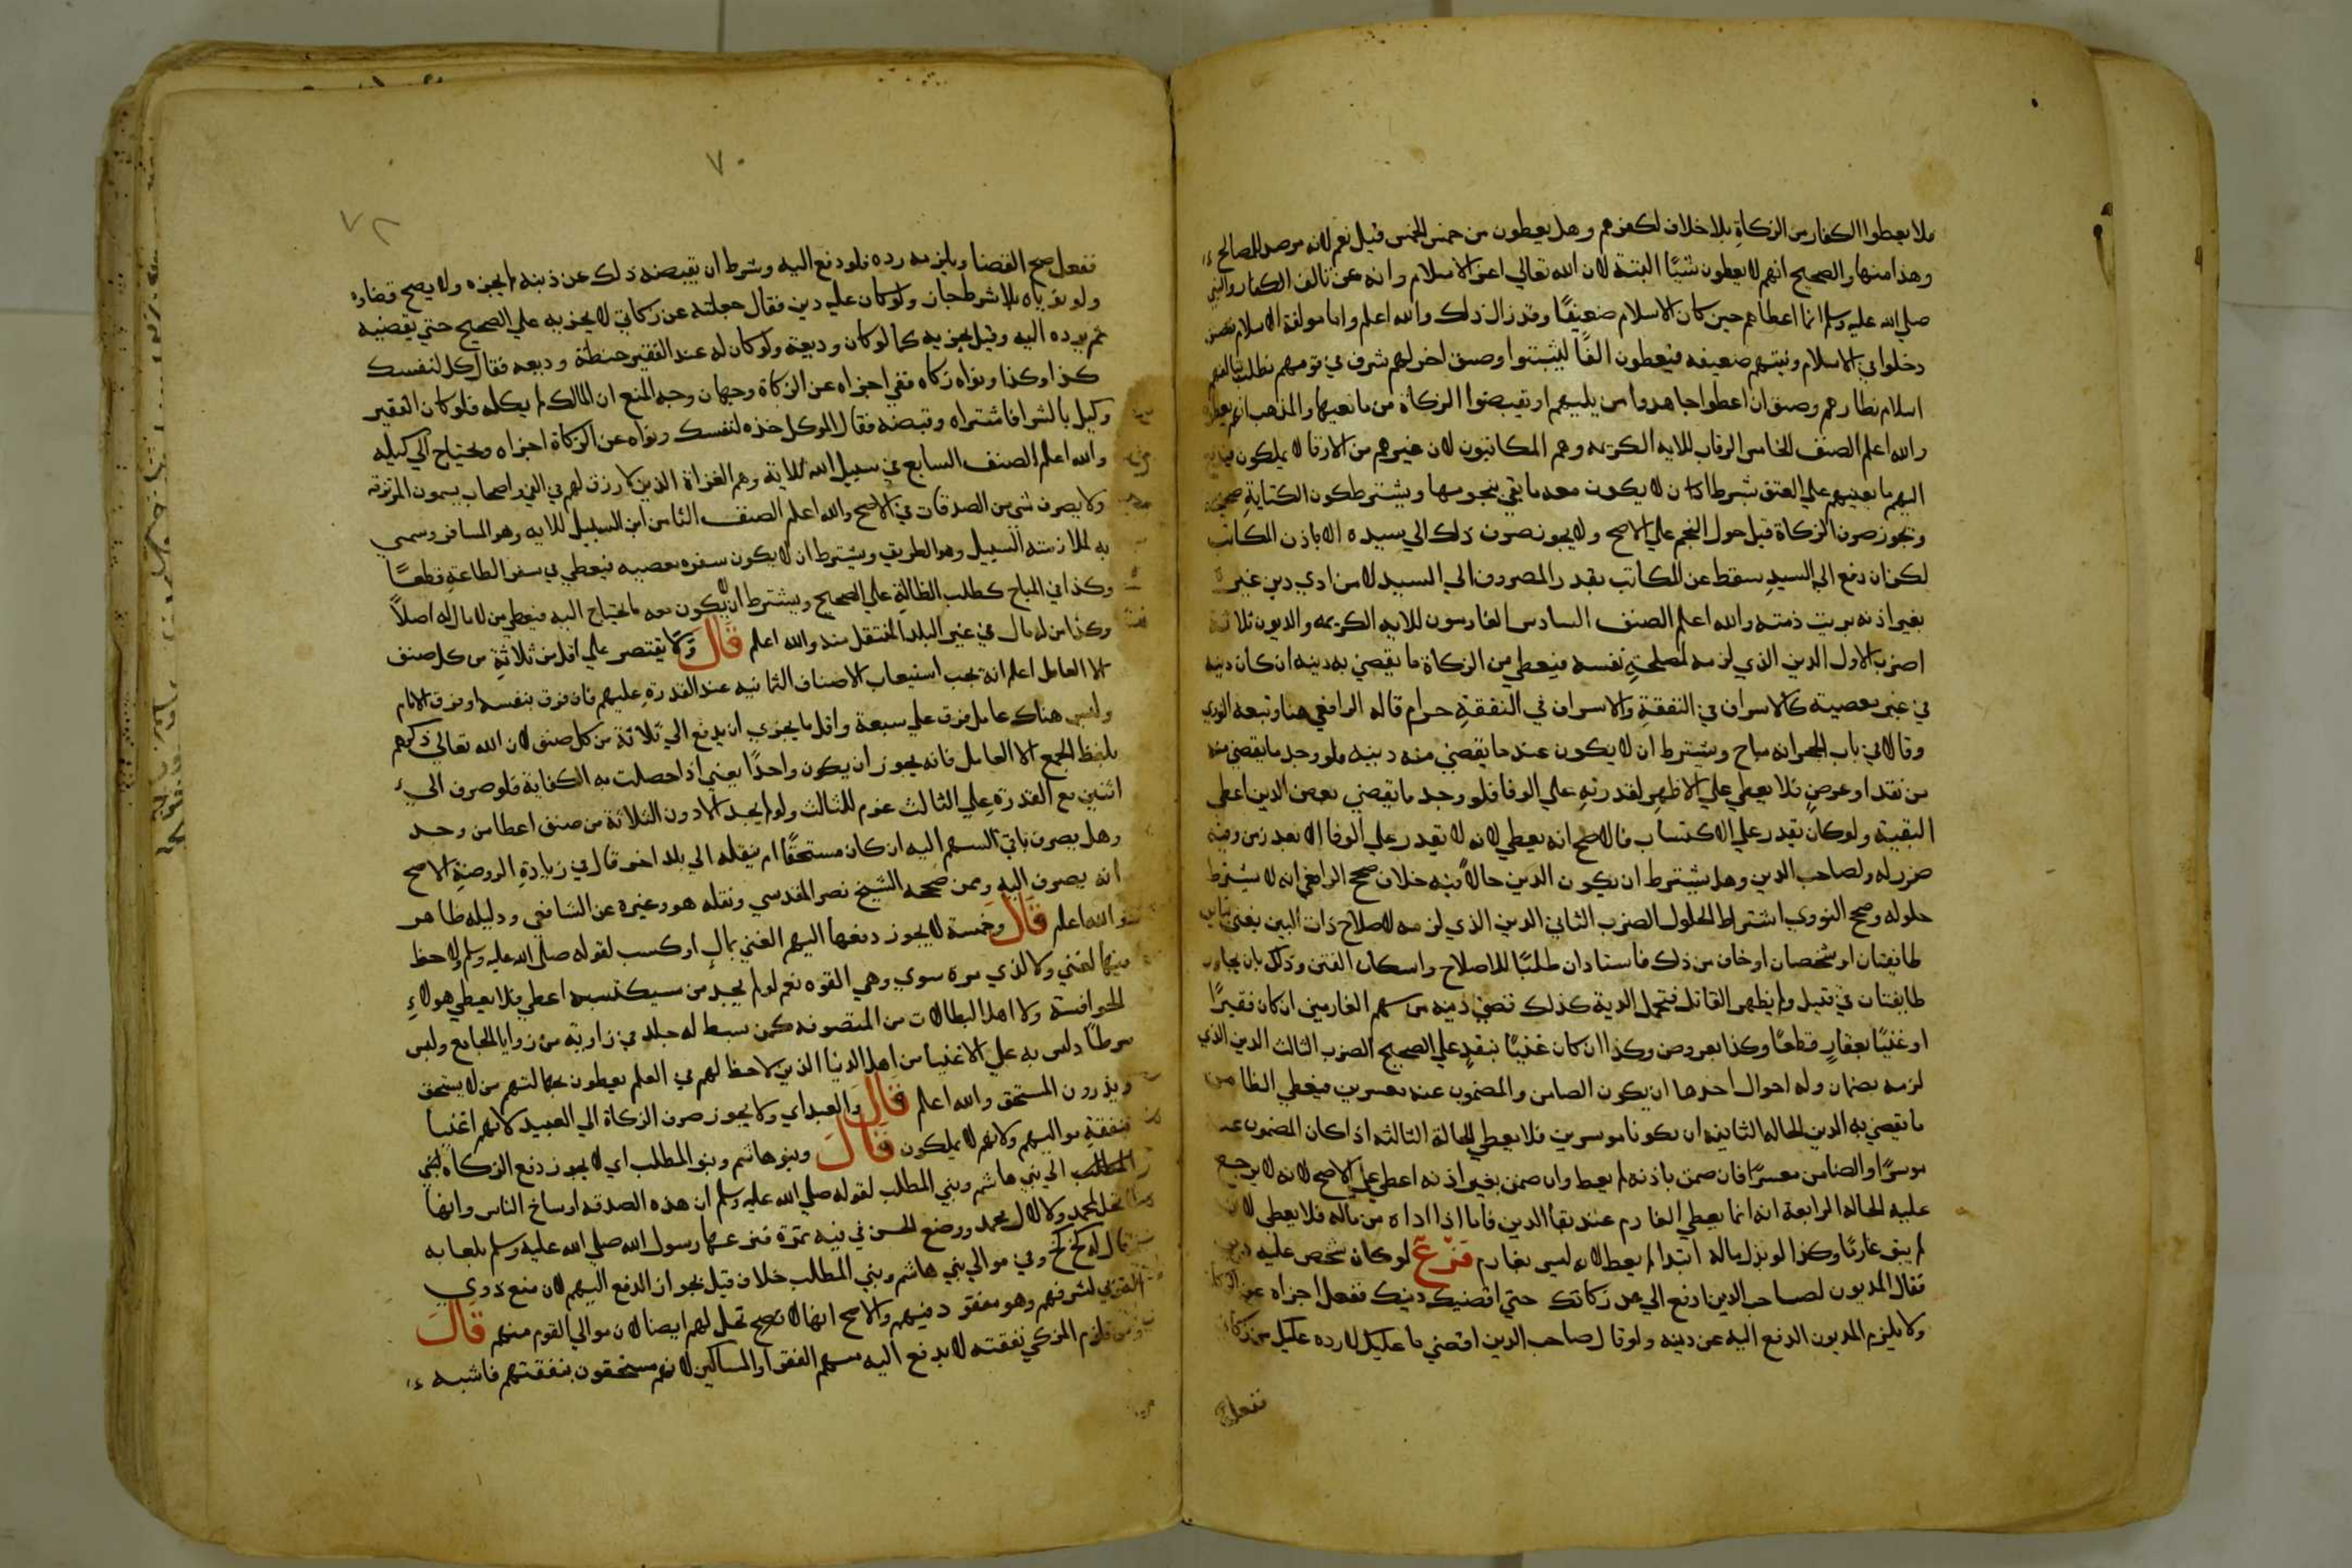 فلا يعطوا الكفار من الزكاة بلا خلاف لكفرهم وهل يعطون من خمس الخمس قيل نعم لانه مرصد للمصالح
وهذا منها والصحيح انهم لا يعطون شيًا البتة لان الله تعالي اعز الاسلام واغناه عن تالف الكفار والنبي
صلي الله عليه وسلم انما اعطاهم حين كان الاسلام ضعيفًا وقد زال ذلك والله اعلم واما مولفة الاسلام فصنف
دخلوا في الاسلام ونيتهم ضعيفه فيعطون الفًا ليثبتوا وصنف اخر لهم شرف في قومهم نطلب بتالفهم
اسلام نظارهم وصنف ان اعطوا جاهدوا من يليهم او يقبضوا الزكاة من مانعيها والمذهب انهم يعطون
والله اعلم الصنف الخامس الرقاب للايه الكريمه وهم المكاتبون لان غيرهم من الارقا لا يملكون فيدفع
اليهم ما يعينهم علي العتق بشرط ان لا يكون معه ما يفي بنجومه ويشترط كون الكتابة صحيحه
وتجوز صرف الزكاة قبل حول النجم علي الاصح ولا يجوز صرف ذلك الي سيده الا باذن المكاتب
لكن ان دفع الي السيد سقط عن المكاتب بقدر المصروف الي السيد لان من ادي دين غيره
بغير اذنه بريت ذمته والله اعلم الصنف السادس الغارمون للايه الكريمه والديون ثلاثة
اضرب الاول الدين الذي لزمه لمصلحة نفسه فيعطي من الزكاة ما يقضي به دينه ان كان دينه
في غير معصية كالاسراف في النفقة والاسراف في النفقة حرام قاله الرافعي هنا وتبعه النووي
وقالا في باب الحجر انه مباح ويشترط ان لا يكون عنده ما يقضي منه دينه فلو وجد ما يقضي منه
من نقد او عرض فلا يعطي علي الاظهر لقدرته علي الوفا فلو وجد ما يقضي بعض الدين اعطي
البقية ولو كان يقدر علي الاكتساب فالاصح انه يعطي لانه لا يقدر علي الوفا الا بعد زمن وفيه
ضرر له ولصاحب الدين وهل يشترط ان يكون الدين حالاً فيه خلاف صحح الرافعي انه لا يشترط
حلوله وصحح النووي اشتراط الحلول الضرب الثاني الدين الذي لزمه لاصلاح ذات البين يعني تباين
طايفتان او شخصان او خاف من ذلك فاستادان طلبًا للاصلاح واسكان الفتن وذلك بان يتحارب
طايفتان في قتيل ولم يظهر القاتل فتحمل الدية كذلك تقضي دينه من سهم الغارمين ان كان فقيرًا
او غنيًا بعقار قطعًا وكذا بعروض وكذا ان كان غنيًا بنقد علي الصحيح الضرب الثالث الدين الذي
لزمه بضمان وله احوال احدها ان يكون الضامن والمضمون عنه معسرين فيعطي الضامن
ما يقضي به الدين الحاله الثانيه ان يكونا موسرين فلا يعطي الحالة الثالثه اذا كان المضمون عنه
موسرًا والضامن معسرًا فان ضمن باذنه لم يعط وان ضمن بغير اذنه اعطي علي الاصح لانه لا يرجع
عليه الحاله الرابعة انه انما يعطي الغارم عند بقا الدين فاما اذا اداه من ماله فلا يعطي لانه
لم يبق غارمًا وكذا لو بذل ماله ابتدا لم يعط لانه ليس بغارم فرع لو كان شخص عليه دين
فقال المديون لصاحب الدين ادفع الي من زكاتك حتي اقضيك دينك ففعل اجزاه عن الزكاة
ولا يلزم المديون الدفع اليه عن دينه ولو قال صاحب الدين اقضني ما عليك لارده عليك من زكاتي
ففعل
٧٠
٧٢
ففعل صح القضا ويلزمه رده فلو دفع اليه وشرط ان يقبضه ذلك عن دينه لم يجزه ولا يصح قضاوه
ولو نوياه بلا شرط جاز ولو كان عليه دين فقال جعلته عن زكاتي لا يجزيه علي الصحيح حتي يقضيه
ثم يرده اليه وقيل يجزيه كما لو كان وديعة ولو كان له عند الفقير حنطة وديعه فقال كل لنفسك
كذا وكذا ونواه زكاه ففي اجزاه عن الزكاة وجهان وجه المنع ان المالك لم يكله فلو كان الفقير
وكيل بالشرا فاشتراه وقبضه فقال الموكل خذه لنفسك ونواه عن الزكاة اجزاه ولا يحتاج الي كيله
والله اعلم الصنف السابع في سبيل الله للاية وهم الغزاة الذين لا رزق لهم في الفي واصحاب يسمون المرتزقه
ولا يصرف شي من الصدقات في الاصح والله اعلم الصنف الثامن ابن السبيل للايه وهو المسافر وسمي
به لملازمته السبيل وهو الطريق ويشترط ان لا يكون سفره معصيه فيعطي في سفر الطاعة قطعًا
وكذا في المباح كطلب الظالة علي الصحيح ويشترط ان لا يكون معه ما يحتاج اليه فيعطي من لا مال له اصلاً
وكذا من له مال في غير البلد المنتقل منه والله اعلم قال ولا يقتصر علي اقل من ثلاثة من كل صنف
الا العامل اعلم انه يجب استيعاب الاصناف الثمانيه عند القدرة عليهم فان فرق بنفسه او فرق الامام
وليس هناك عامل فرق علي سبعة واقل ما يجزي ان يدفع الي ثلاثة من كل صنف لان الله تعالي ذكرهم
بلفظ الجمع الا العامل فانه يجوز ان يكون واحدًا يعني اذا حصلت به الكفاية فلو صرف الي
اثنين مع القدرة علي الثالث غرم للثالث ولو لم يجد الا دون الثلاثة من صنف اعطا من وجد
وهل يصرف باقي السهم اليه ان كان مستحقًا ام ينقله الي بلد اخر قال في زيادة الروضة الاصح
انه يصرف اليه وممن صححه الشيخ نصر المقدسي ونقله هو وغيره عن الشافعي ودليله ظاهر
والله اعلم قال وخمسة لا يجوز دفعها اليهم الغني بمال او كسب لقوله صلي الله عليه وسلم ولا حظ
فيها لغني ولا لذي مرة سوي وهي القوه نعم لو لم يجد من يستكتسبه اعطي فلا يعطي هولاء
الحوافشة ولا اهل البطالات من المتصوفه كمن بسط له جلد في زاوية من زوايا الجامع ولبس
مرطًا دلس به علي الاغنيا من اهل الدنيا الذين لا حظ لهم في العلم يعطون بجهالتهم من لا يستحق
ويذرون المستحق والله اعلم قال والعبد اي ولا يجوز صرف الزكاة الي العبيد لانهم اغنيا
بنفقة مواليهم ولانهم لا يملكون قال وبنو هاشم وبنو المطلب اي لا يجوز دفع الزكاة لبني
المطلب الي بني هاشم وبني المطلب لقوله صلي الله عليه وسلم ان هذه الصدقه اوساخ الناس وانها
لا تحل لمحمد ولا لال محمد ووضع الحسن في فيه تمرة فنزعها رسول الله صلي الله عليه وسلم بلعابه
وقال له كخ كخ وفي موالي بني هاشم وبني المطلب خلاف قيل يجوز الدفع اليهم لان منع ذوي
القربي لشرفهم وهو مفقود فيهم والاصح انها لا تصح تحل لهم ايضا لان موالي القوم منهم قال
ومن تلزم المزكي نفقته لا يدفع اليه بسهم الفقرا والمساكين لانهم مستحقون بنفقتهم فاشبه